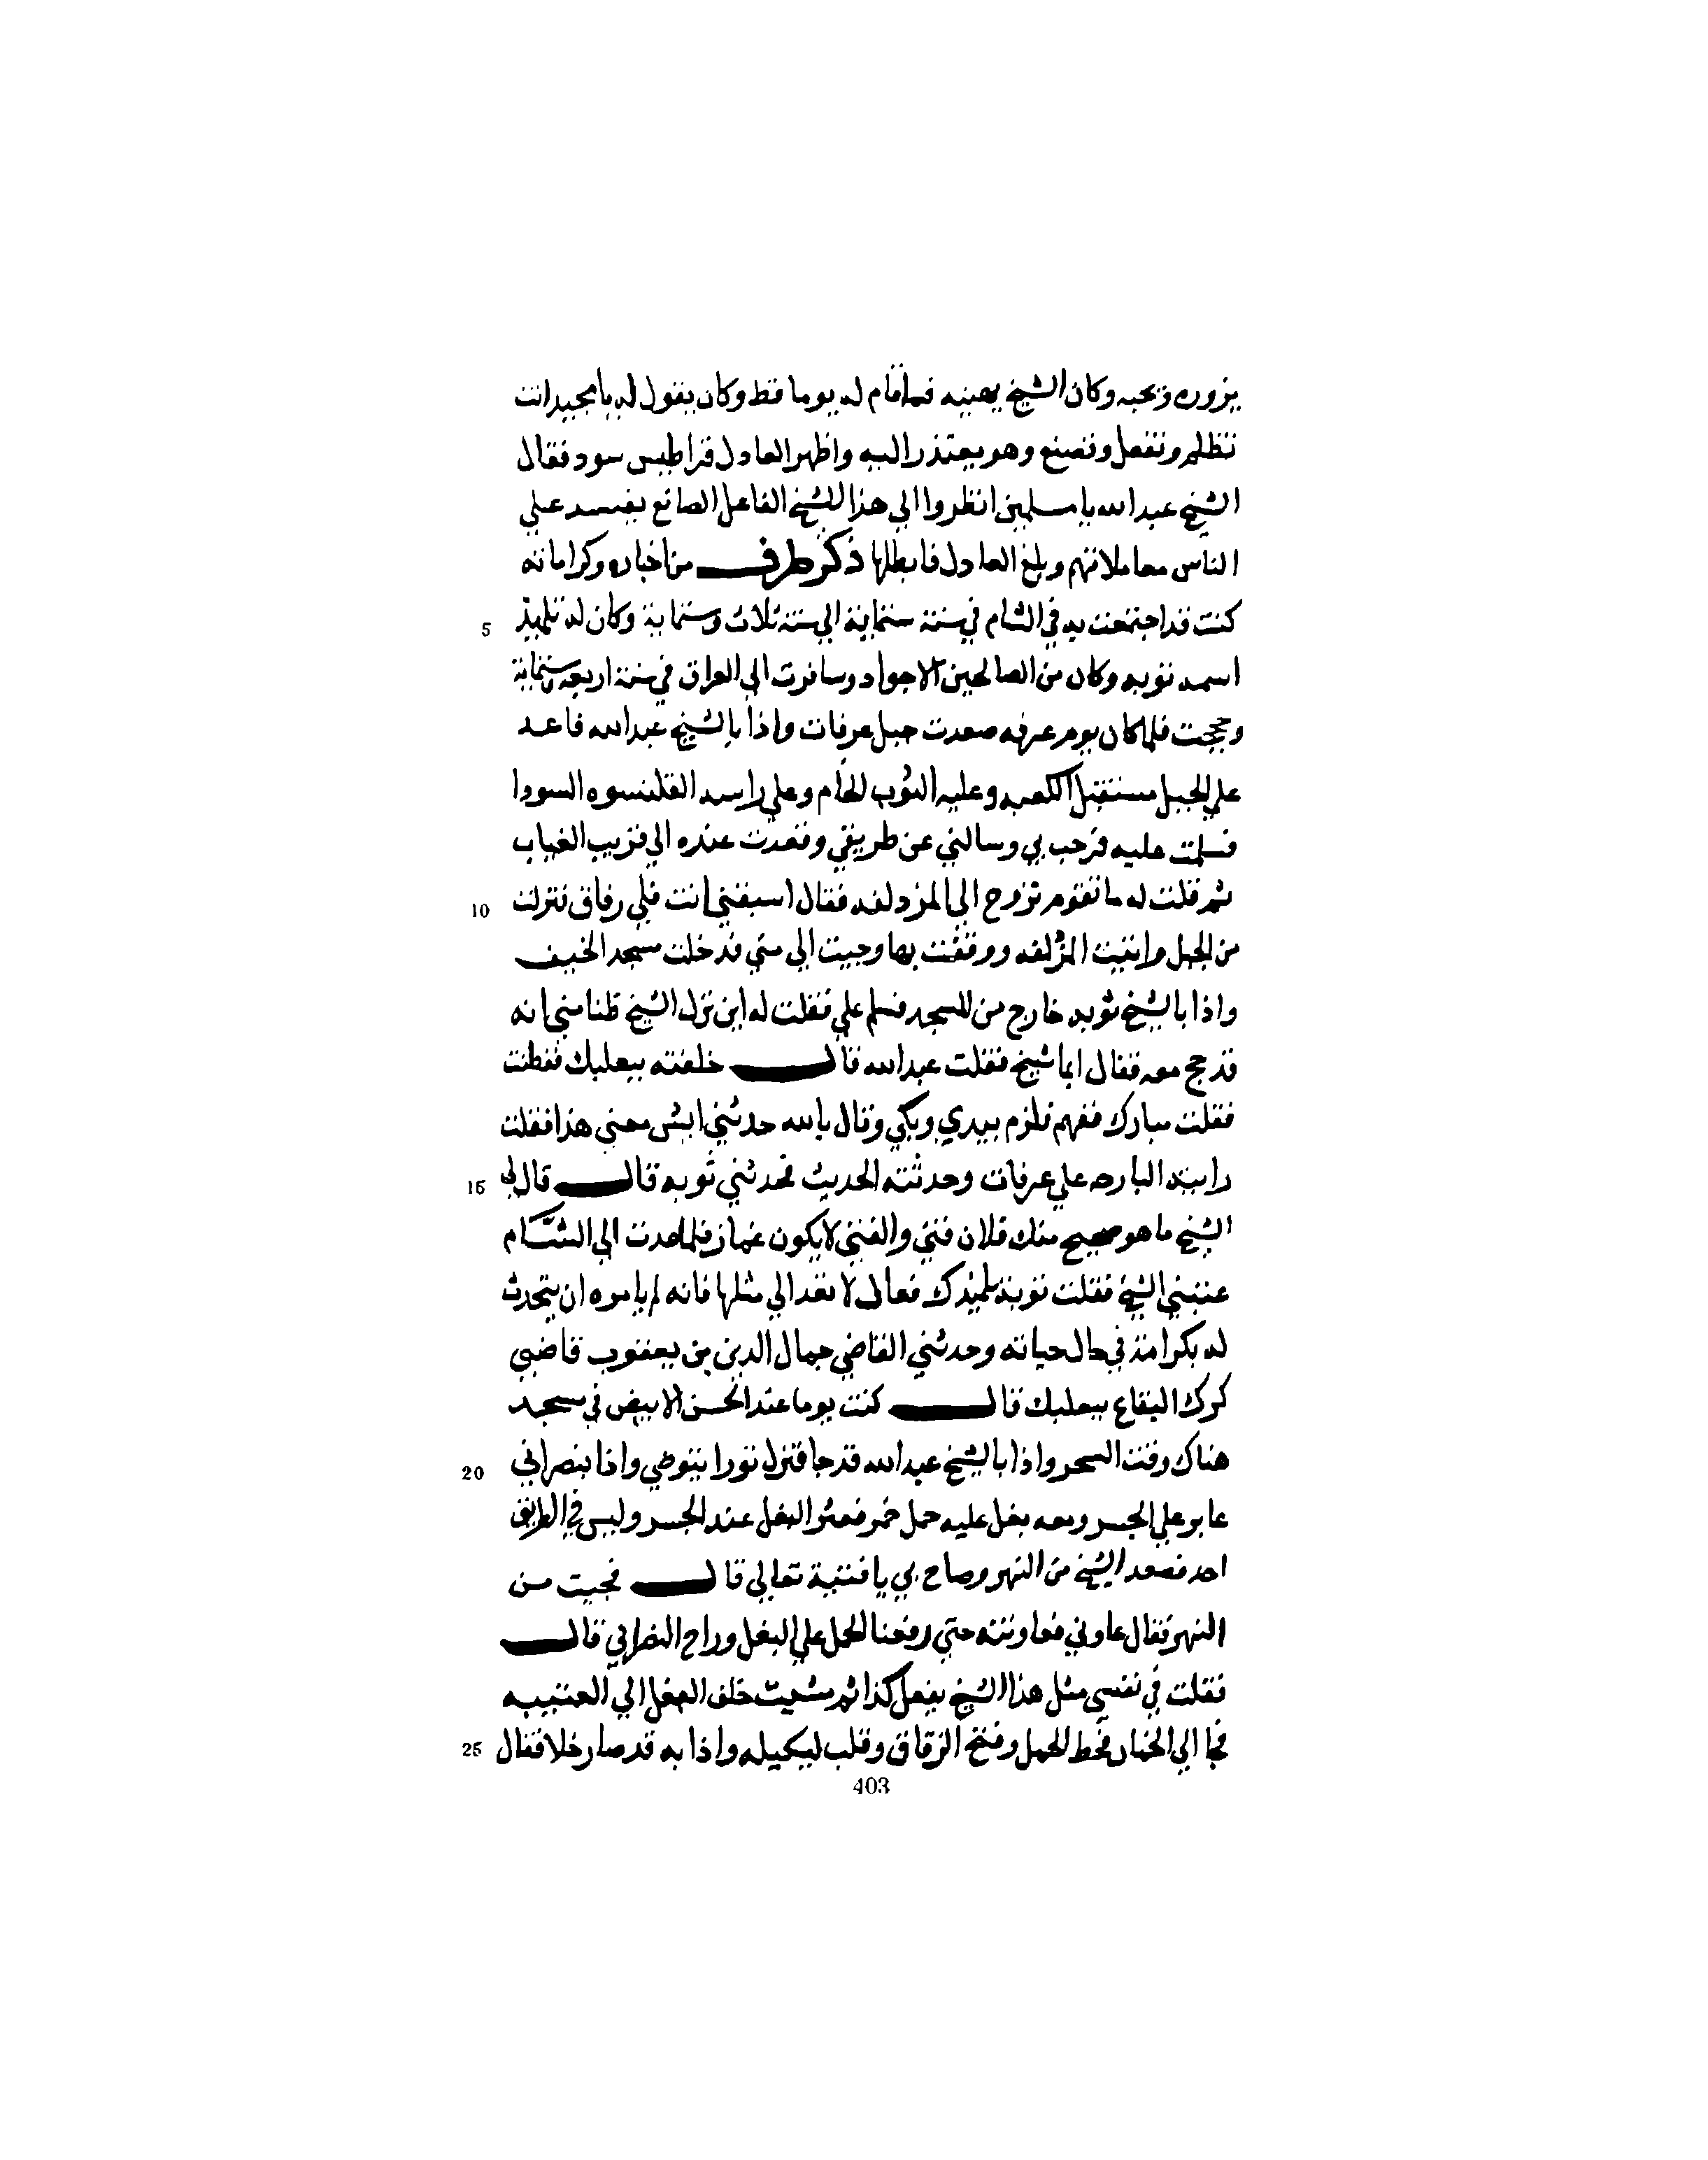 يزوره ويحبه وكان الشيخ يهينه فما قام له يوما قط وكان يقول له يا مجيد انت
تظلم وتفعل وتصنع وهو يعتذر اليه واظهر العادل قراطيس سود فقال
الشيخ عبدالله يا مسلمين انظروا الي هذا الشيخ الفاعل الصانع يفسد علي
الناس معاملاتهم وبلغ العادل فابطلها ذكر طرف من اخباره وكراماته
5 كنت قد اجتمعت به في الشام في سنة ستماية الي سنة ثلاث وستماية وكان له تلميذ
اسمه توبه وكان من الصالحين الاجواد وسافرت الي العراق في سنة اربعه وستماية
وحججت فلما كان يوم عرفه صعدت جبل عرفات واذا بالشيخ عبدالله قاعد
علي الجبل مستقبل الكعبه وعليه الثوب الخام وعلي راسه القلنسوه السودا
فسلمت عليه فرحب بي وسالني عن طريقي وقعدت عنده الي قريب الغياب
10 ثم قلت له ما تقوم نروح الي المزدلفه فقال اسبقني انت فلي رفاق فنزلت
من الجبل واتيت المزدلفه ووقفت بها وجيت الي مني فدخلت مسجد الخيف
واذا بالشيخ توبه خارج من المسجد فسلم علي فقلت له اين نزل الشيخ ظنا مني انه
قد حج معه فقال ايما شيخ فقلت عبدالله قال خلفته ببعلبك ففطنت
فقلت مبارك ففهم فلزم بيدي وبكي وقال بالله حدثني ايش معني هذا فقلت
15 رايته البارحه علي عرفات وحدثته الحديث فحدثني توبه قال قال لي
الشيخ ما هو صحيح منك فلان فتي والفتي لا يكون غماز فلما عدت الي الشام
عتبني الشيخ فقلت توبة تلميذك فقال لا تعد الي مثلها فانه لم يامره ان يتحدث
له بكرامة في حال حياته وحدثني القاضي جمال الدين بن يعقوب قاضي
كرك البقاع ببعلبك قال كنت يوما عند الجسر الابيض في مسجد
20 هناك وقت السحر واذا بالشيخ عبدالله قد جا فنزل ثورا يتوضي واذا بنصراني
عابر علي الجسر ومعه بغل عليه حمل خمر فعثر البغل عند الجسر وليس في الطريق
احد فصعد الشيخ من النهر وصاح بي يا فقيه تعالي قال فجيت من
النهر فقال عاوني فعاونته حتي رفعنا الحمل علي البغل وراح النصراني قال
فقلت في نفسي مثل هذا الشيخ يفعل كذا ثم مشيت خلف البغل الي العقيبه
25 فجا الي الخمار فحط الحمل وفتح الزقاق وقلب ليكيله واذا به قد صار خلا فقال
403